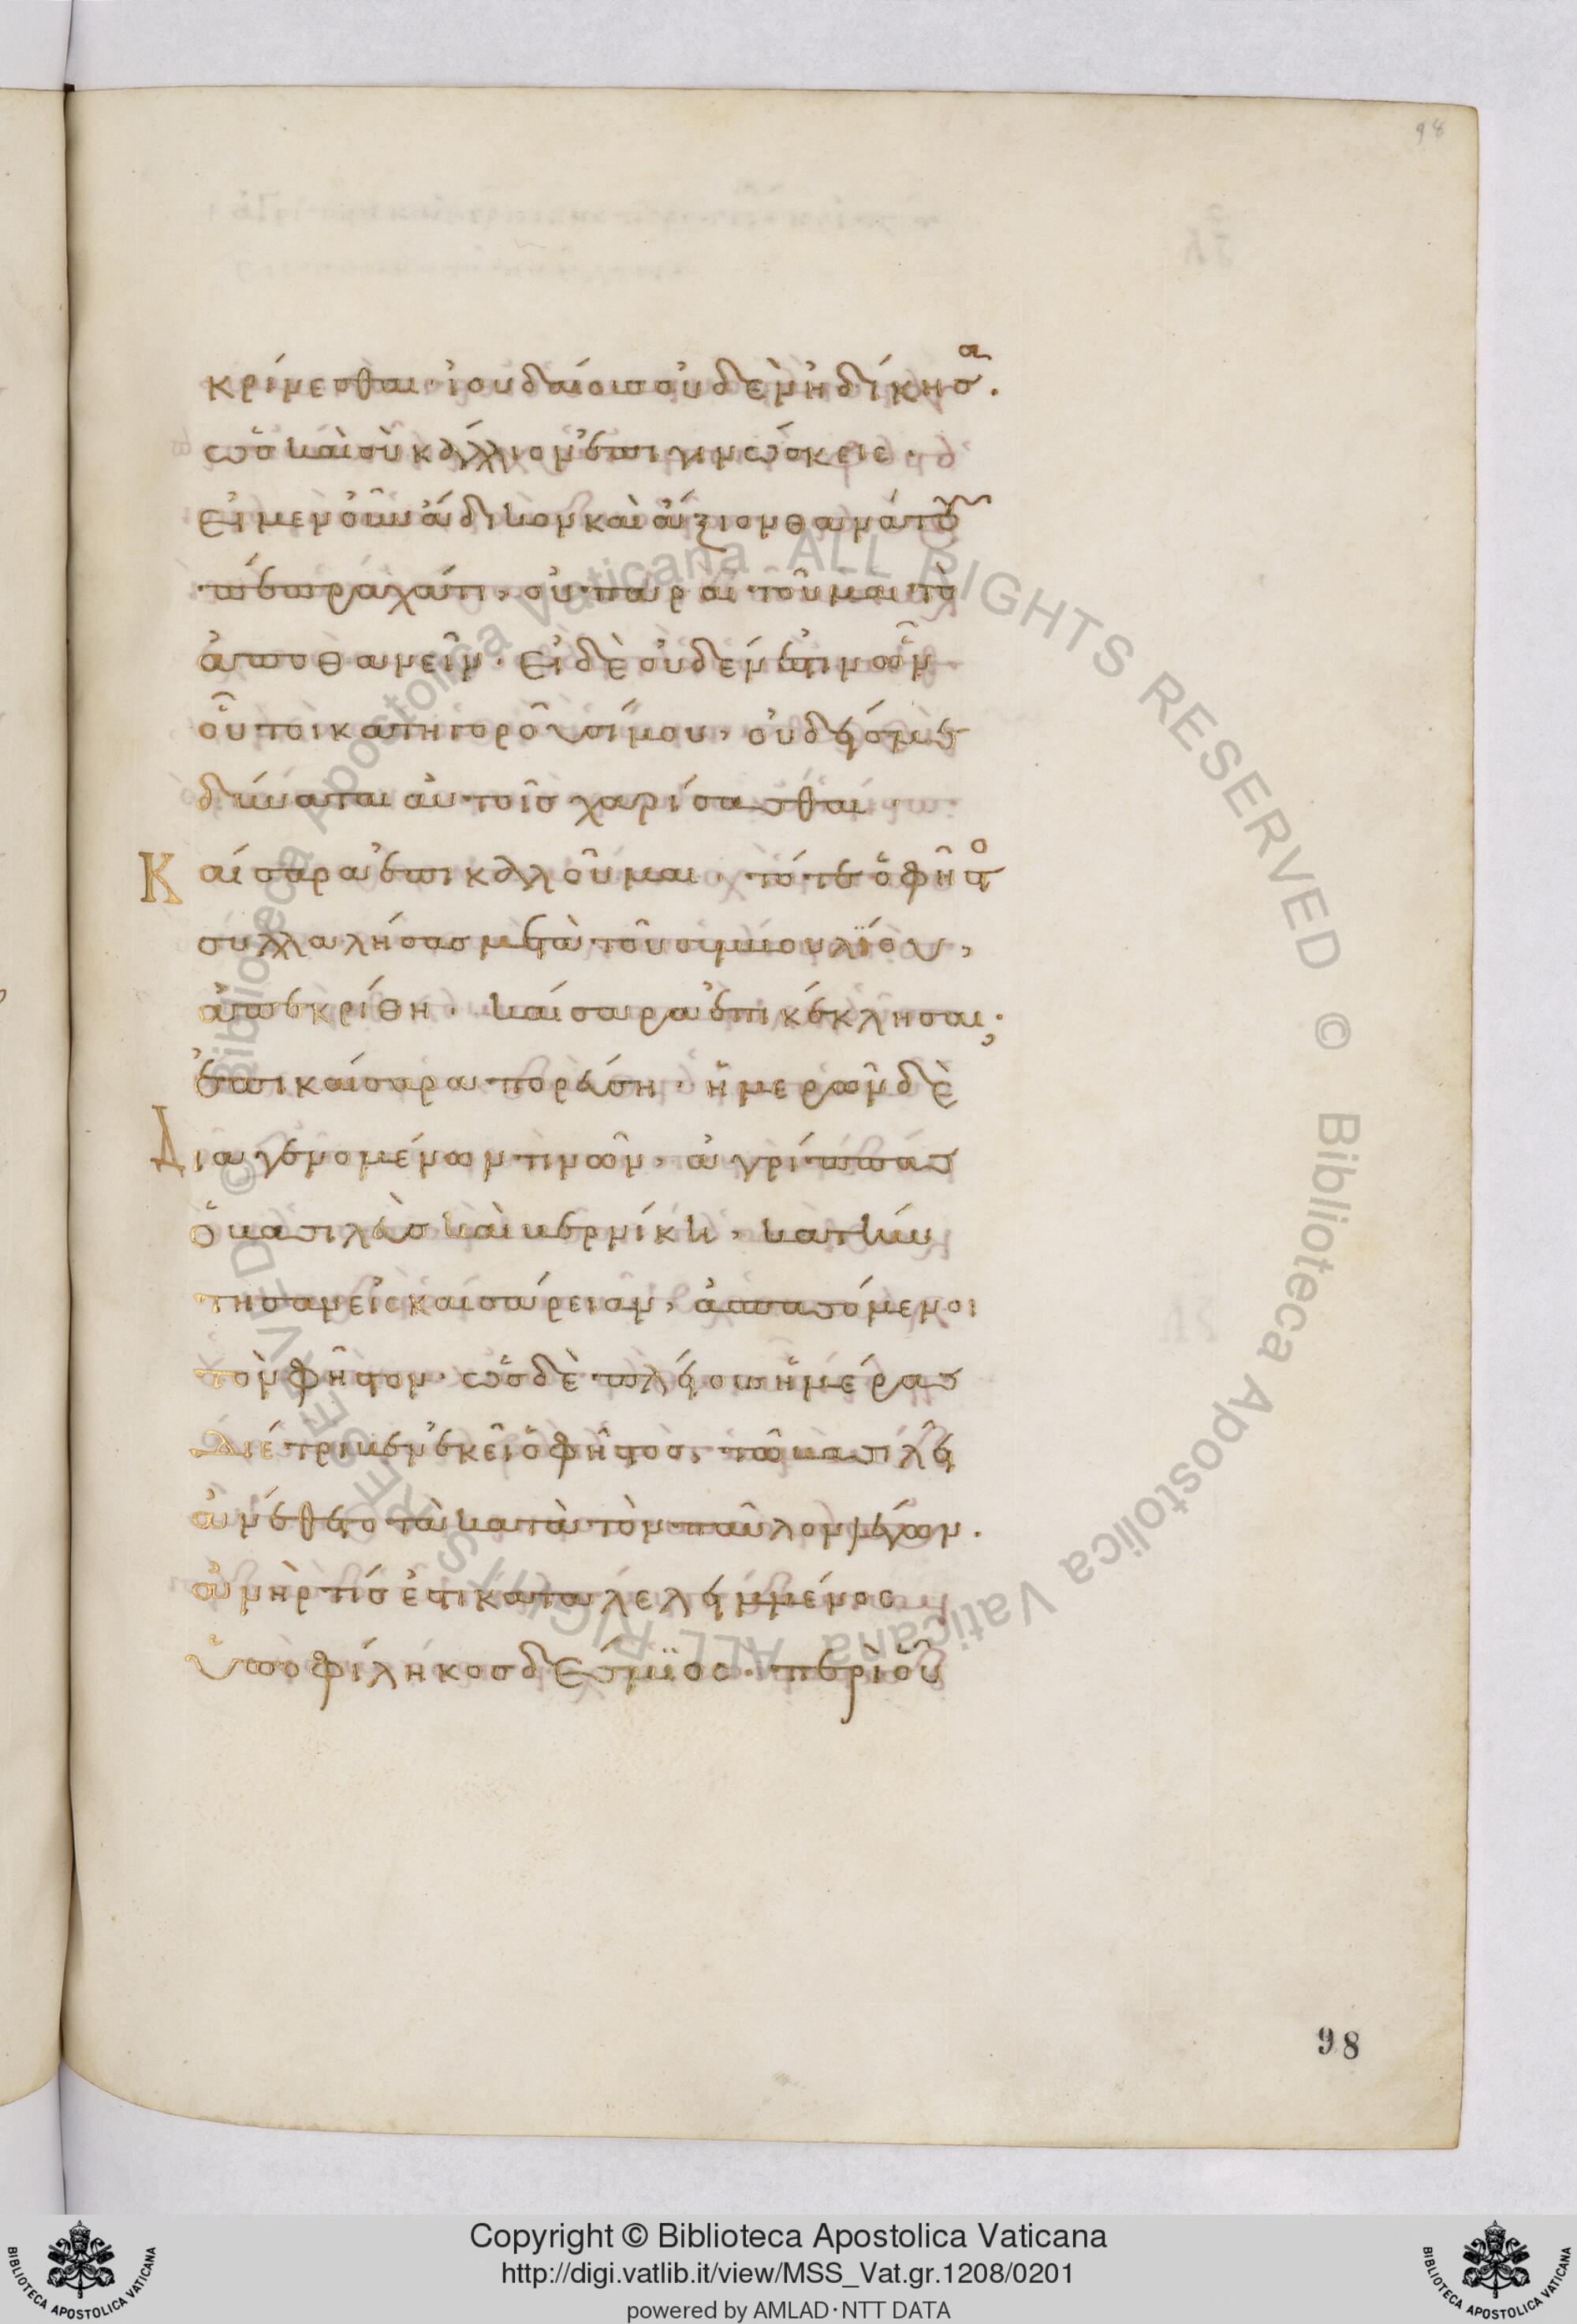 98
κρίνεσθαι· ἰουδαίοισ οὐδὲν ἠδίκησα.
ὡσ καὶ σὺ κάλλιον ἐπιγινώσκεις·
εἰ μὲν οὖν ἀδικῶ καὶ ἄξιον θανάτου
πέπραχά τι, οὐ παραιτοῦμαι τὸ
ἀποθανεῖν· εἰ δὲ οὐδέν ἐστιν ὧν
οὗτοι κατηγοροῦσί μου, οὐδείσ με
δύναται αὐτοῖσ χαρίσασθαι·
Καίσαρα ἐπικαλοῦμαι· τότε ὁ φῆστος
συλλαλήσασ μετὰ τοῦ συμβουλίου,
ἀπεκρίθη· καίσαρα ἐπικέκλησαι;
ἐπὶ καίσαρα πορεύση· ἡμερῶν δὲ
Διαγενομένων τινῶν, ἀγρίππασ
ὁ βασιλεὺσ καὶ βερνίκη, κατήν
τησαν εἰς καισάρειαν, ἀσπασόμενοι
τὸν φῆστον· ὡσ δὲ πλείουσ ἡμέρασ
διέτριβεν ἐκεῖ ὁ φῆστος, τῶ βασιλεῖ
ἀνέθετο τὰ κατὰ τὸν παῦλον λέγων.
ἀνήρ τίσ ἐστι καταλελειμμένος
ὑπὸ φίληκοσ δέσμϊος· περὶ οὗ
98
© Biblioteca Apostolica Vaticana ALL RIGHTS RESERVED © Biblioteca Apostolica Vaticana ALL RIGHTS RESERVED
Copyright © Biblioteca Apostolica Vaticana
http://digi.vatlib.it/view/MSS_Vat.gr.1208/0201
powered by AMLAD·NTT DATA
BIBLIOTECA APOSTOLICA VATICANA
BIBLIOTECA APOSTOLICA VATICANA